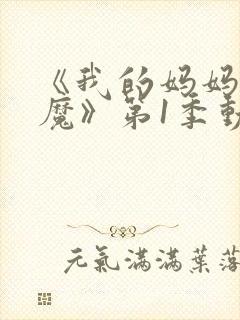 《我的妈妈
魔》第1季動
元氣滿滿葉落